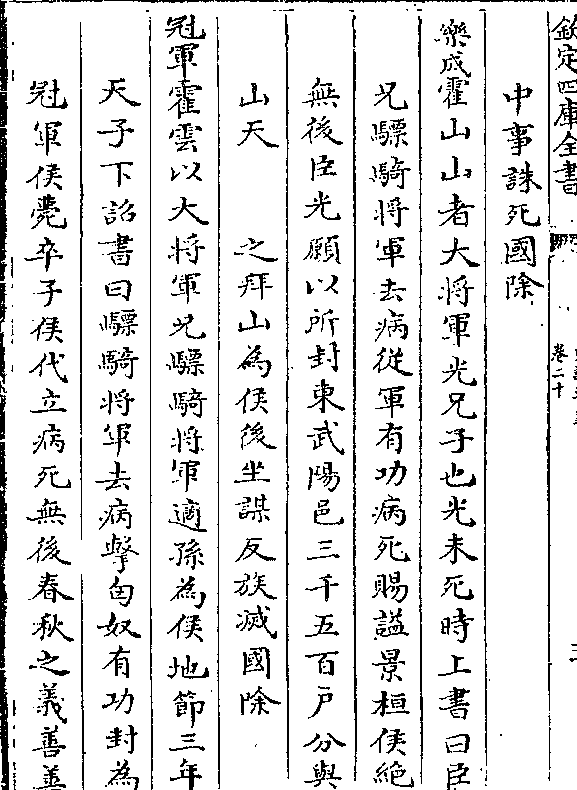 欽定四庫全書
卷二十
中事誅死國除
樂成霍山山者大將軍光兄子也光未死時上書曰臣
兄驃騎將軍去病從軍有功病死賜謚景桓侯絶
無後臣光願以所封東武陽邑三千五百户分與
山天　之拜山為侯後坐謀反族滅國除
冠軍霍雲以大將軍兄驃騎將軍適孫為侯地節三年
天子下詔書曰驃騎將軍去病擊匈奴有功封為
冠軍侯薨卒子侯代立病死無後春秋之義善善